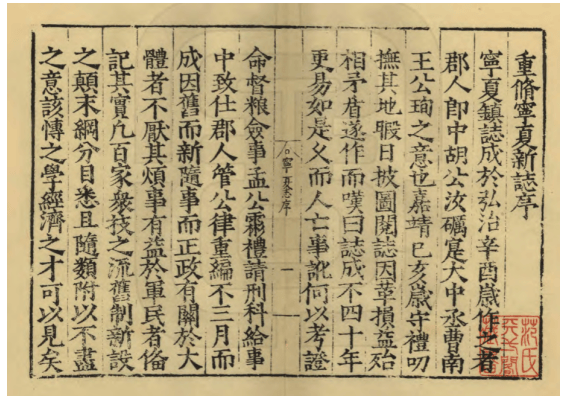 重脩寧夏新誌序
寧夏鎮誌成於弘治辛酉歲作之者
郡人郎中胡公汝礪寔大中丞曹南
王公珣之意也嘉靖己亥歲守禮叨
撫其地暇日披圖閱誌因革損益殆
相矛盾遂作而嘆曰誌成不四十年
更易如是乆而人亡事訛何以考證
寧夏序
一
命督粮僉事孟公霦禮請刑科給事
中致仕郡人管公律重編不三月而
成因舊而新隨事而正政有關於大
體者不厭其煩事有益於軍民者俻
記其實凢百家衆技之流舊制新設
之顛末綱分目悉且隨類附以不盡
之意該愽之學經濟之才可以見矣
范氏
天一閣
藏書